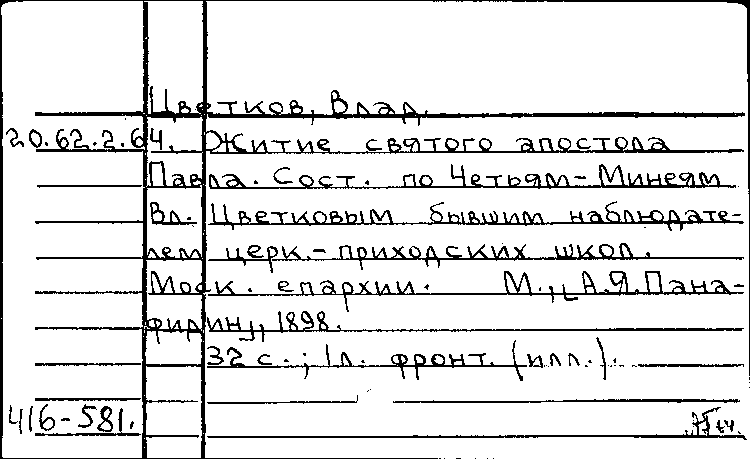 Цветков, Влад.
20.62.2.64. Житие святого апостола
Павла. Сост. по Четьям-Минеям
Вл. Цветковым бывшим наблюдате-
лем церк.-приходских школ.
Моск. епархии. М., [А.Я.Пана-
фидин], 1898.
32 с.; 1л. фронт. (илл.).
416-581.